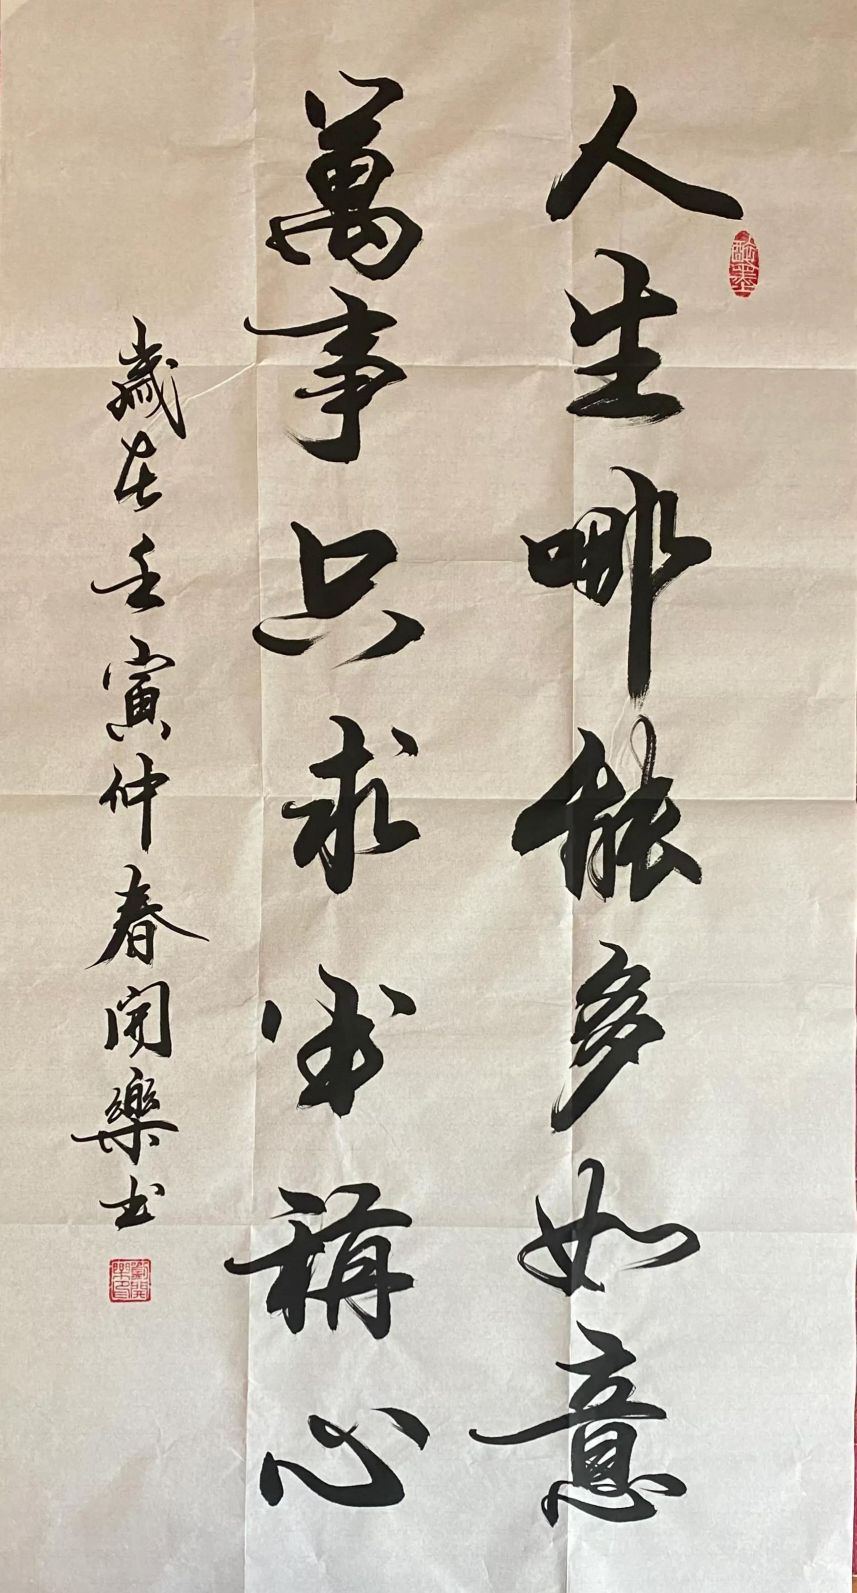 人生哪能多如意
萬事只求半稱心
歲在壬寅仲春開樂书